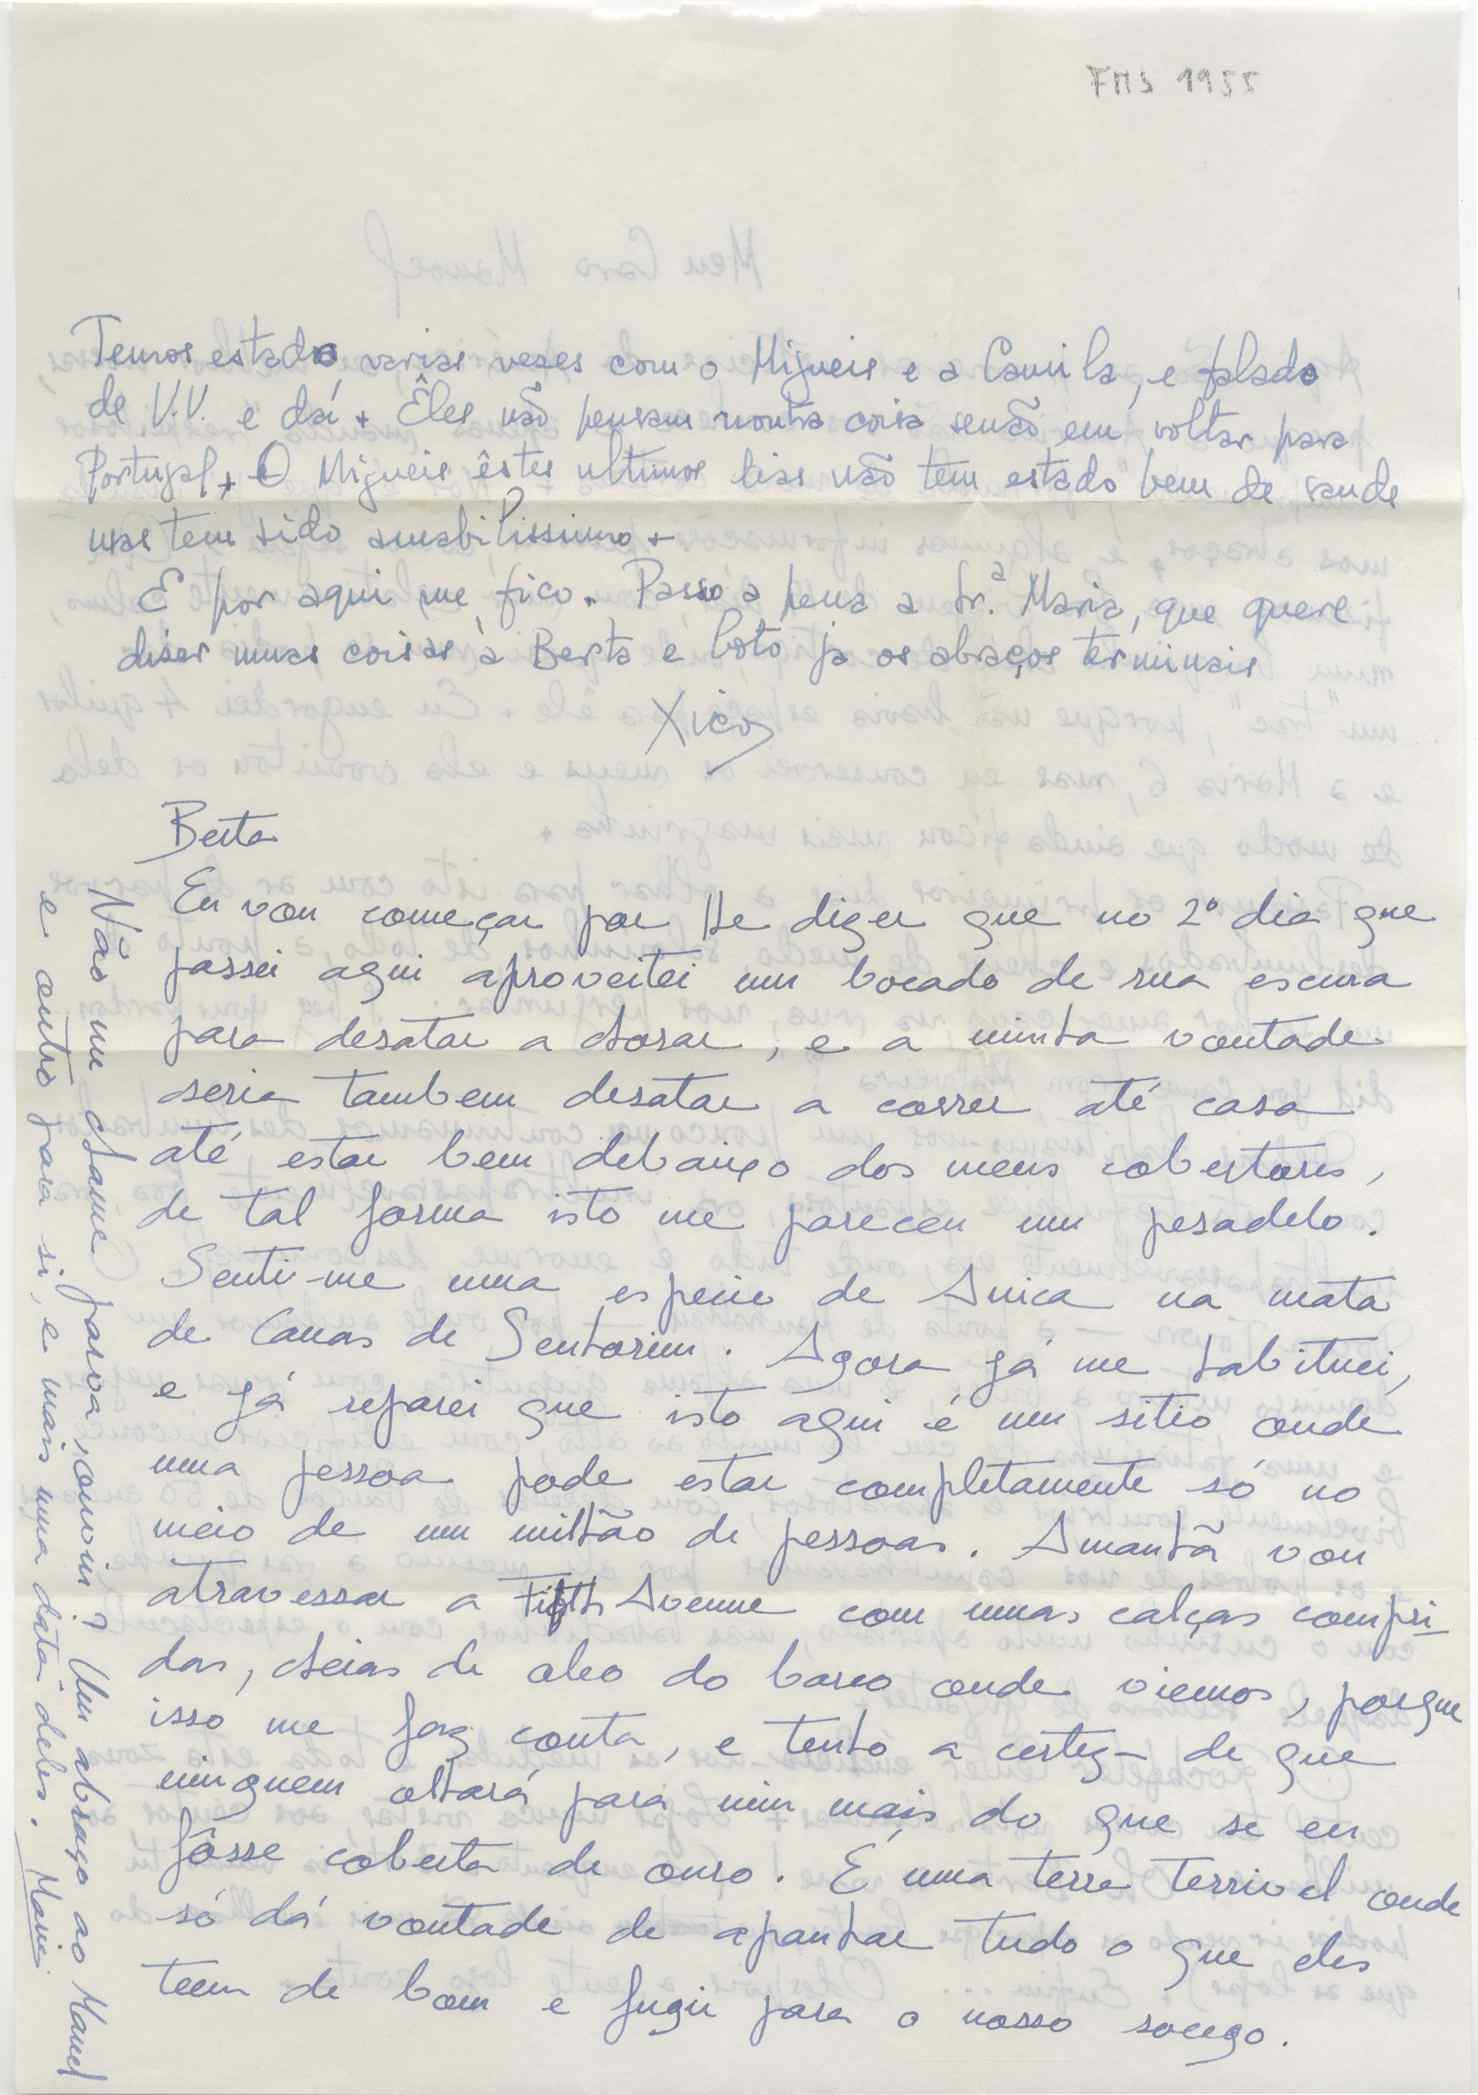 FMS 1955
Temos estado varias vezes com o Migueis e a Camila, e falado
de V.V. e daí + Êles não pensam noutra coisa senão em voltar para
Portugal + O Migueis êstes ultimos dias não tem estado bem de saude
mas tem sido amabilissimo +
E por aqui me fico. Passo a pena a Sr.ª Maria, que quere
dizer umas coisas à Berta e boto ja os abraços terminais
Xico
Berta
Eu vou começar por lhe dizer que no 2º dia que
passei aqui aproveitei um bocado de rua escura
para desatar a chorar, e a minha vontade
seria tambem desatar a correr até casa
até estar bem debaixo dos meus cobertores,
de tal forma isto me pareceu um pesadelo.
Senti-me uma especie de Anica na mata
de Canas de Senhorim. Agora já me habituei,
e já reparei que isto aqui é um sitio onde
uma pessoa pode estar completamente só no
meio de um milhão de pessoas. Amanhã vou
atravessar a Fifth Avenue com umas calças compri-
das, cheias de oleo do barco onde viemos, porque
isso me faz conta, e tenho a certeza de que
ninguem olhará para mim mais do que se eu
fôsse coberta de ouro. É uma terra terrivel onde
só dá vontade de apanhar tudo o que eles
teem de bom e fugir para o nosso socego.
Não me chame parva, ouviu? Um abraço ao Manel
e outro para si, e mais uma data deles. Maria